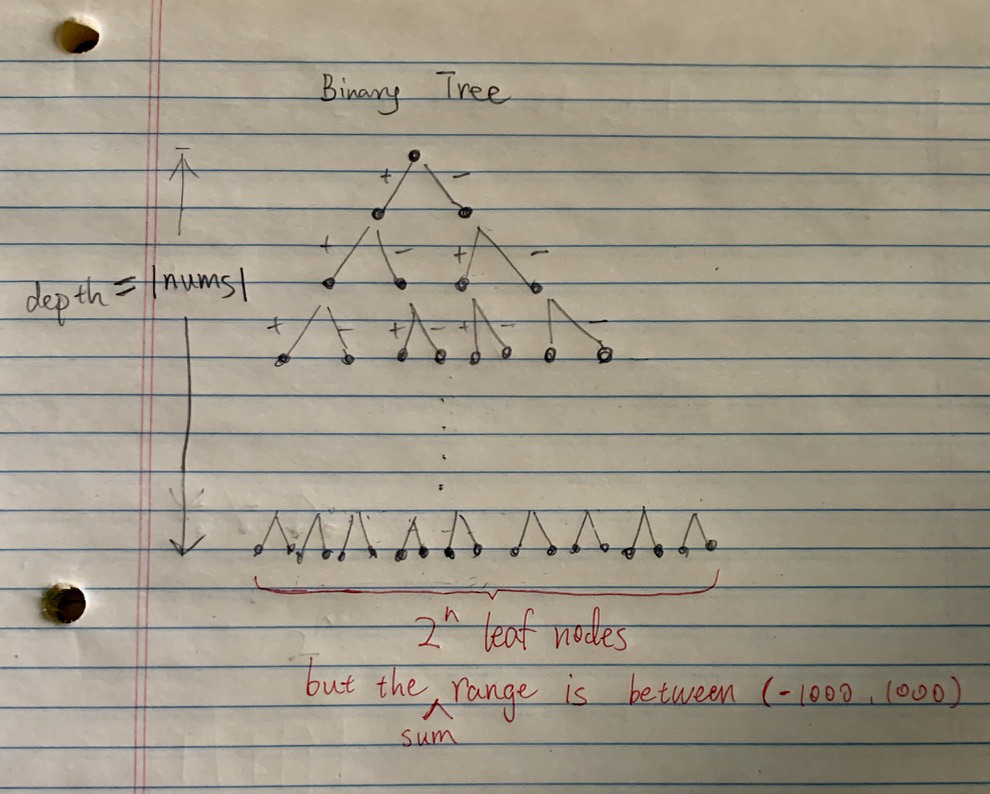 Binary Tree
+ -
+ - + -
depth = |nums|
+ - + - + - -
2ⁿ leaf nodes
but the ^ range is between (-1000, 1000)
sum